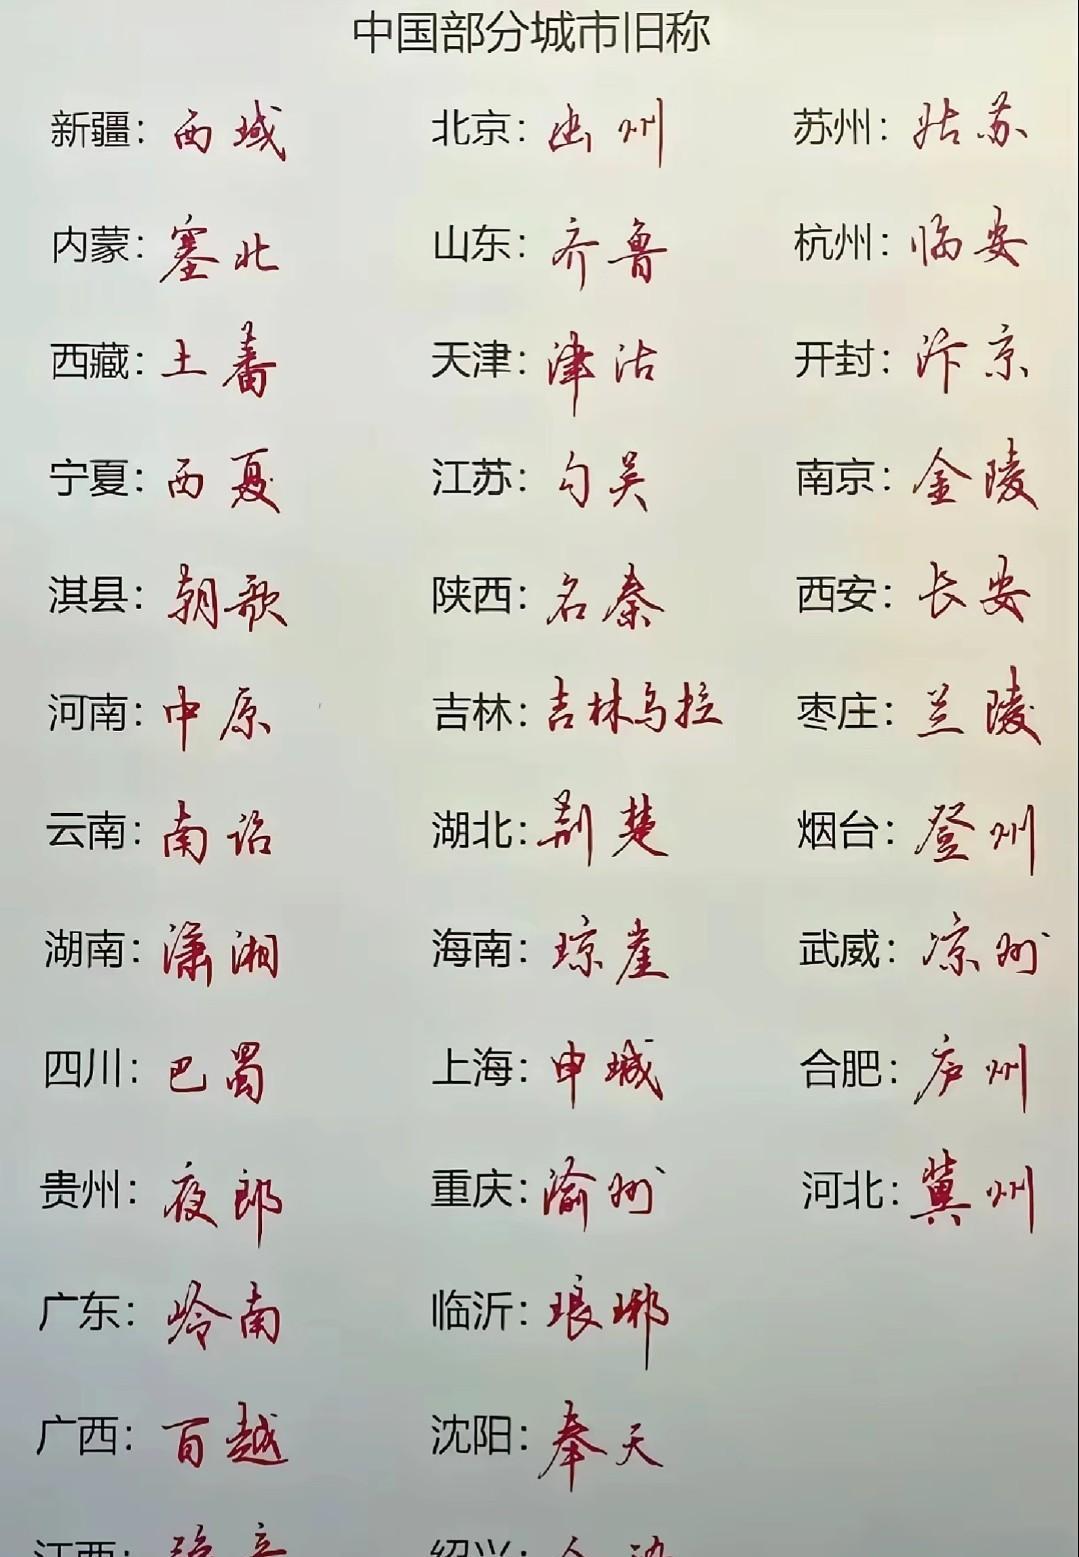 中国部分城市旧称
新疆：西域 北京：幽州 苏州：姑苏
内蒙：塞北 山东：齐鲁 杭州：临安
西藏：土蕃 天津：津沽 开封：汴京
宁夏：西夏 江苏：勾吴 南京：金陵
淇县：朝歌 陕西：名秦 西安：长安
河南：中原 吉林：吉林乌拉 枣庄：兰陵
云南：南诏 湖北：荆楚 烟台：登州
湖南：潇湘 海南：琼崖 武威：凉州
四川：巴蜀 上海：申城 合肥：庐州
贵州：夜郎 重庆：渝州 河北：冀州
广东：岭南 临沂：琅琊
广西：百越 沈阳：奉天
江西： 绍兴：